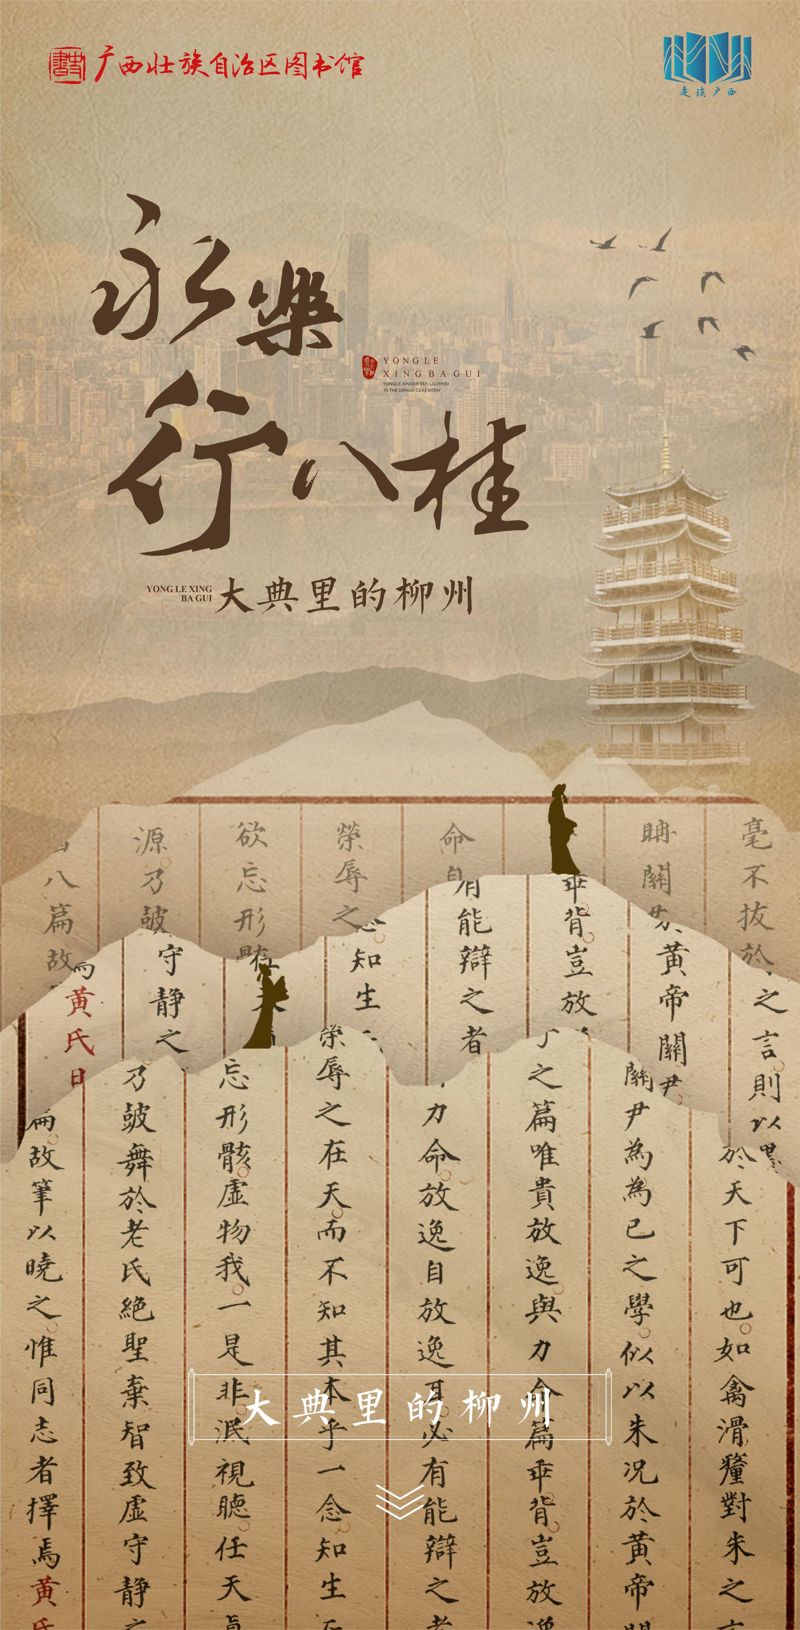 广西壮族自治区图书馆
走读广西
永樂
行八桂
YONGLE
XINGBAGUI
YONG LE XING
BA GUI
大典里的柳州
毫不拔於
之言則以
於天下可也如禽滑釐對朱之言
關尹為為己之學似以朱況於黃帝
黃帝關尹
之篇唯貴放逸與力命篇乖背豈放逸
乖背豈放
力命放逸自放逸耳必有能辯之者
有能辯之者
榮辱之
知生
榮辱之在天而不知其本乎一念知生
欲忘形
忘形骸虛物我一是非泯視聽任天
源乃皷
守靜之
乃皷舞於老氏絕聖棄智致虛守靜之
八篇故
黃氏日
故筆以曉之惟同志者擇焉黃氏
大典里的柳州